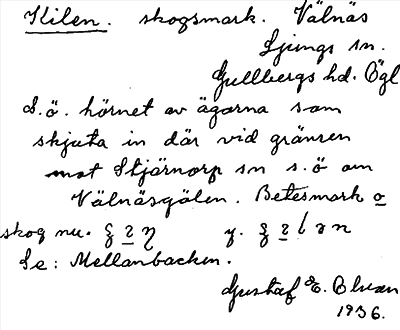 Kilen. skogsmark. Välnäs
Ljungs sn.
Gullbergs hd. Ögl
S.ö. hörnet av ägorna som
skjuta in där vid gränsen
mot Stjärnorp sn s.ö om
Välnäsgölen. Betesmark o
skog nu.
Se: Mellanbacken.
Gustaf E.
1936.